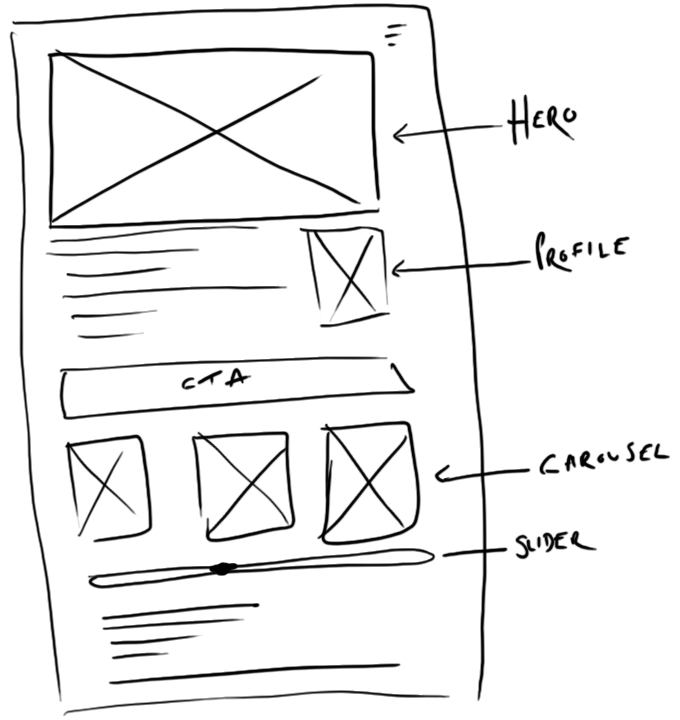 HERO
PROFILE
CTA
CAROUSEL
SLIDER